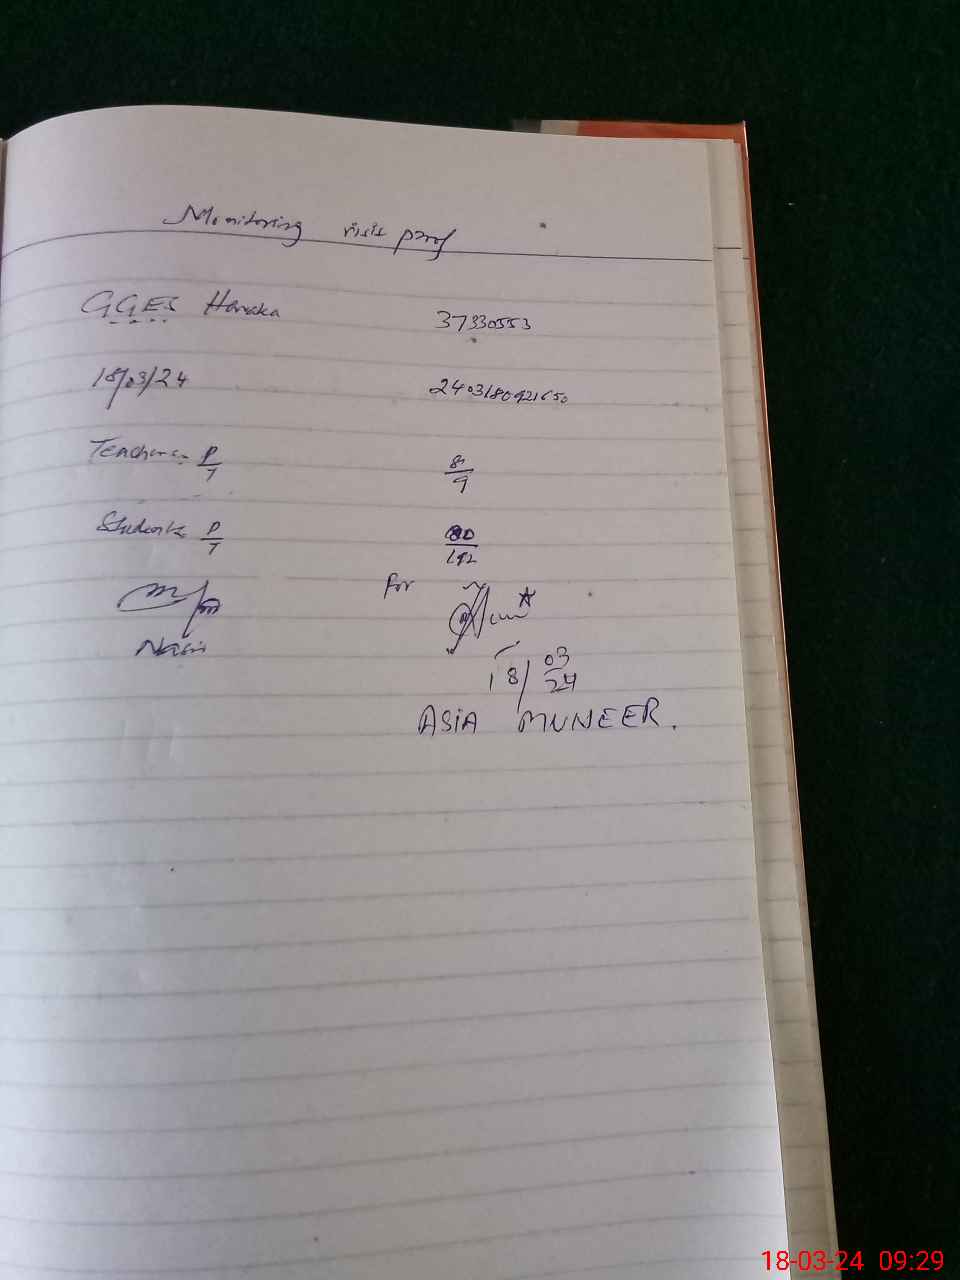 Monitoring visit proof
GGES Haraka 37330553
18/03/24 2403180921650
Teachers P/T 8/9
Students P/T 80/192
Nasir for
18/03/24
ASIA MUNEER.
18-03-24 09:29